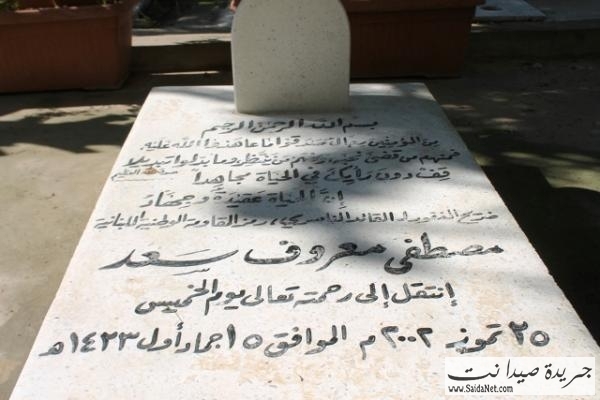 بسم الله الرحمن الرحيم
من المؤمنين رجال صدقوا ما عاهدوا الله عليه
فمنهم من قضى نحبه ومنهم من ينتظر وما بدلوا تبديلا
صدق الله العظيم
قف دون رأيك في الحياة مجاهداً
إن الحياة عقيدة وجهاد
ضريح المغفور له القائد الناصري، رمز المقاومة الوطنية اللبنانية
مصطفى معروف سعد
إنتقل إلى رحمته تعالى يوم الخميس
٢٥ تموز ٢٠٠٢ م الموافق ١٥ جماد أول ١٤٢٣هـ
جريدة صيدا نت
www.SaidaNet.com